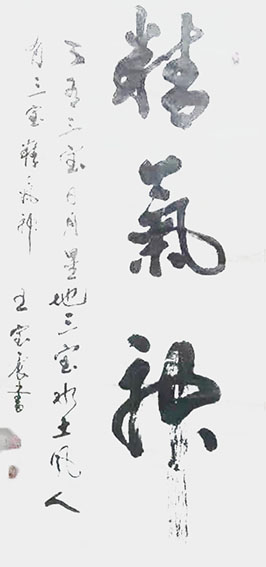 精氣神
天有三宝日月星地三宝水土风人
有三宝精气神
王宝表书